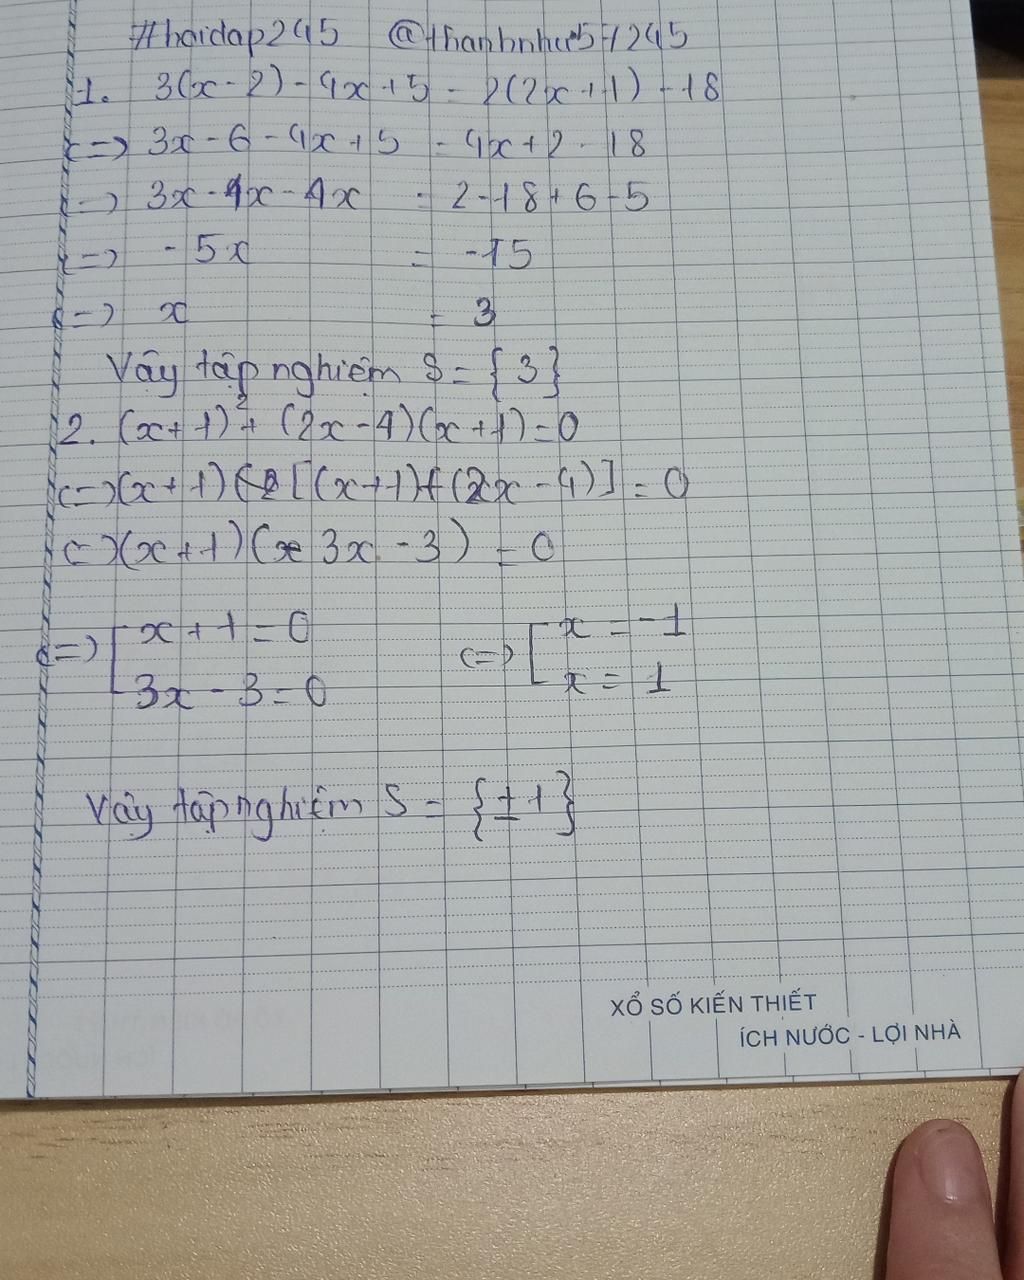 #hoidap245 @thanhnhu57245
1. 3(x-2) - 4x + 5 = 2(2x+1) - 18
<=> 3x - 6 - 4x + 5 = 4x + 2 - 18
<=> 3x - 4x - 4x = 2 - 18 + 6 - 5
<=> - 5x = -15
<=> x = 3
Vậy tập nghiệm S = {3}
2. (x+1)² + (2x-4)(x+1) = 0
<=> (x+1) [(x+1) + (2x-4)] = 0
<=> (x+1)(3x - 3) = 0
<=> [ x + 1 = 0 <=> [ x = -1
3x - 3 = 0 x = 1
Vậy tập nghiệm S = {±1}
XỔ SỐ KIẾN THIẾT
ÍCH NƯỚC - LỢI NHÀ